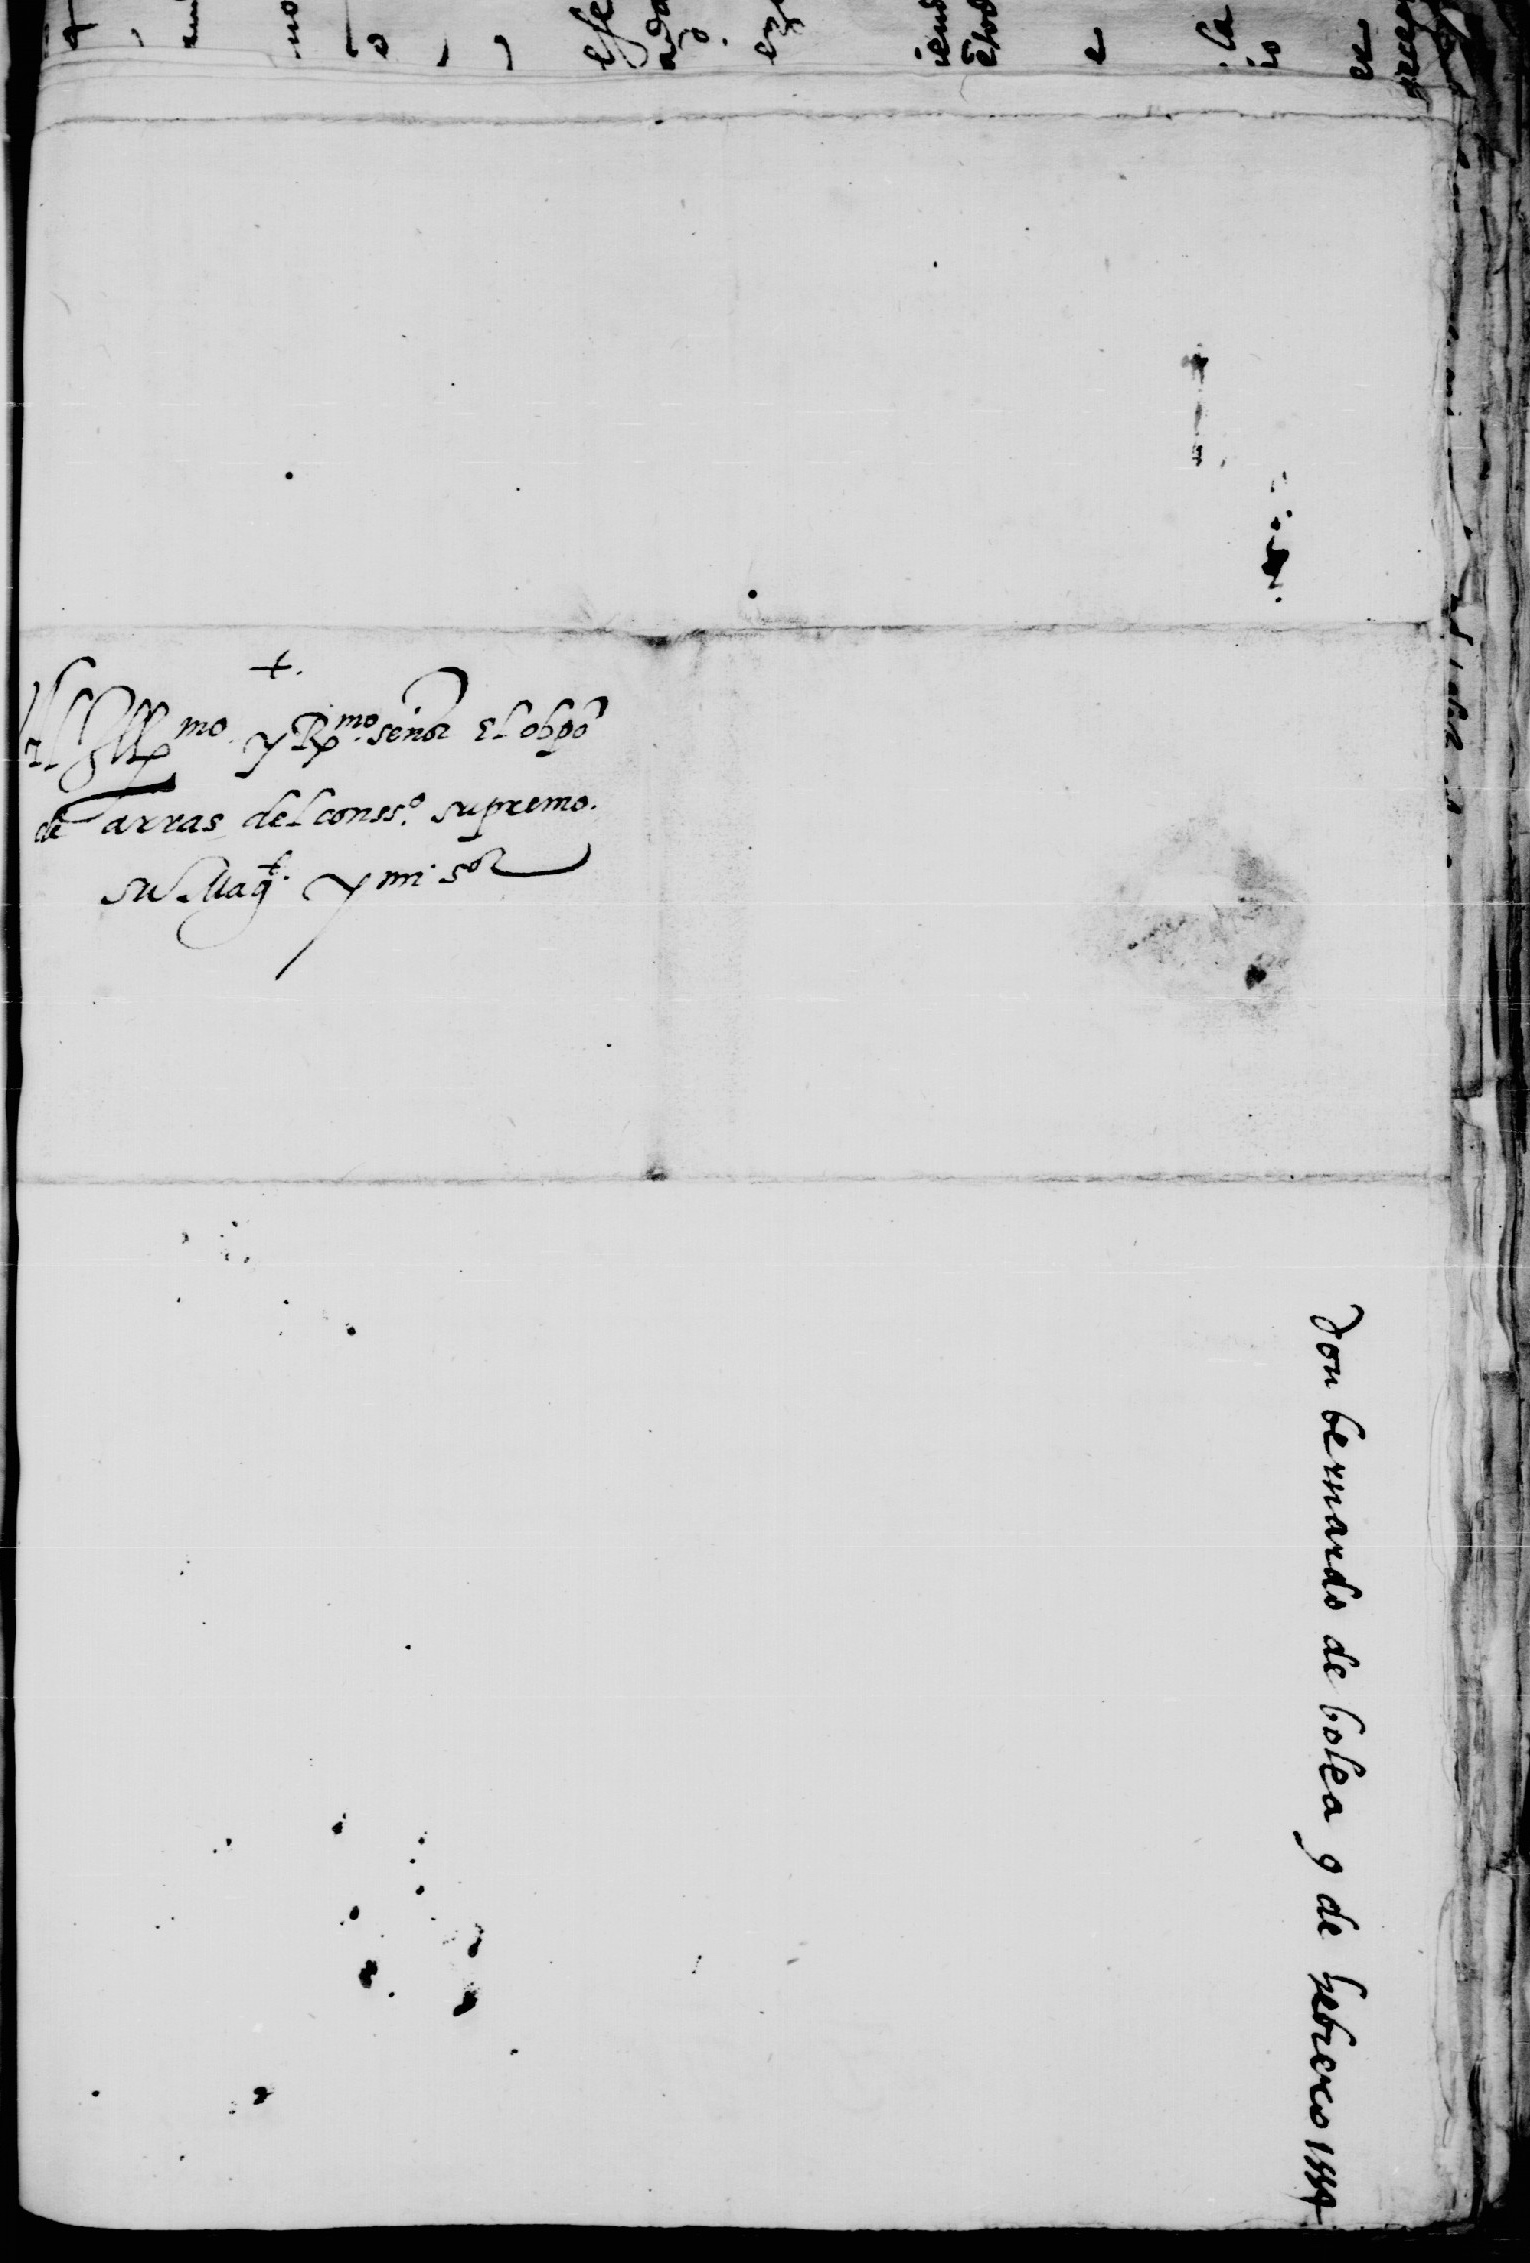 +
Al Ill^mo y R^mo señor El obpõ
de arras del conss^o. supremo.
su Mag^t. y mi s^or
don bernardo de bolea 9 de hebrero 1554